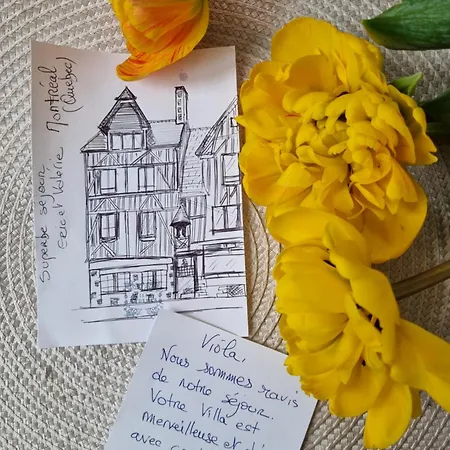 Superbe séjour
Eric et Valérie
Montréal
(Québec)
Viola,
Nous sommes ravis
de notre séjour.
Votre Villa est
merveilleuse et
avec